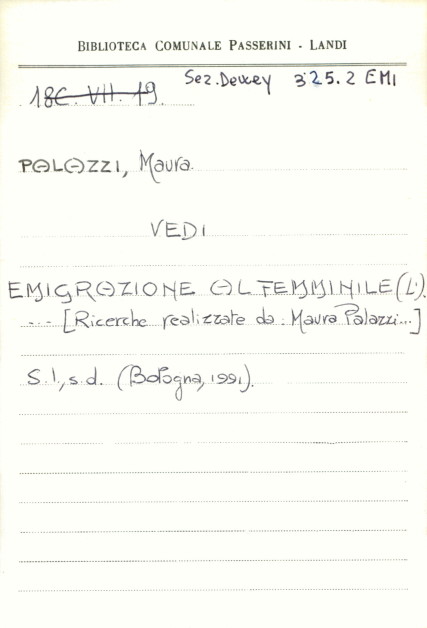 BIBLIOTECA COMUNALE PASSERINI - LANDI
18C. VII. 19. Sez. Dewey 325.2 EMI
PALAZZI, Maura.
VEDI
EMIGRAZIONE AL FEMMINILE (L').
... [Ricerche realizzate da: Maura Palazzi...]
S.l., s.d. (Bologna, 1991).